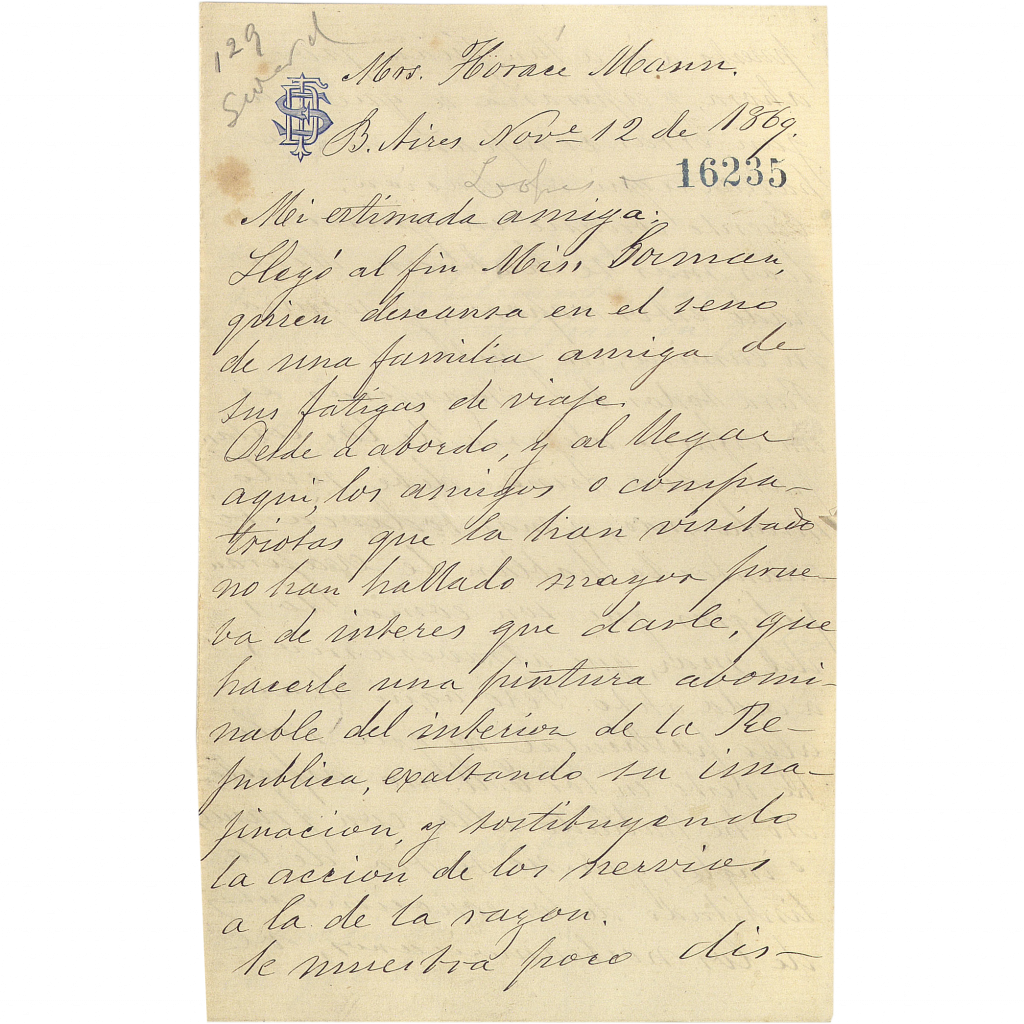 129
Mrs. Horace Mann.
B. Aires Nov.e 12 de 1869.
16235
Mi estimada amiga:
Llegó al fin Miss Gorman,
quien descansa en el seno
de una familia amiga de
sus fatigas de viaje.
Desde a abordo, y al llegar
aqui, los amigos o compa-
triotas que la han visitado
no han hallado mayor prue-
va de interes que darle, que
hacerle una pintura abomi-
nable del interior de la Re-
publica, exaltando su ima-
jinacion, y sostituyendo
la accion de los nervios
a la de la razon.
Se muestra poco dis-